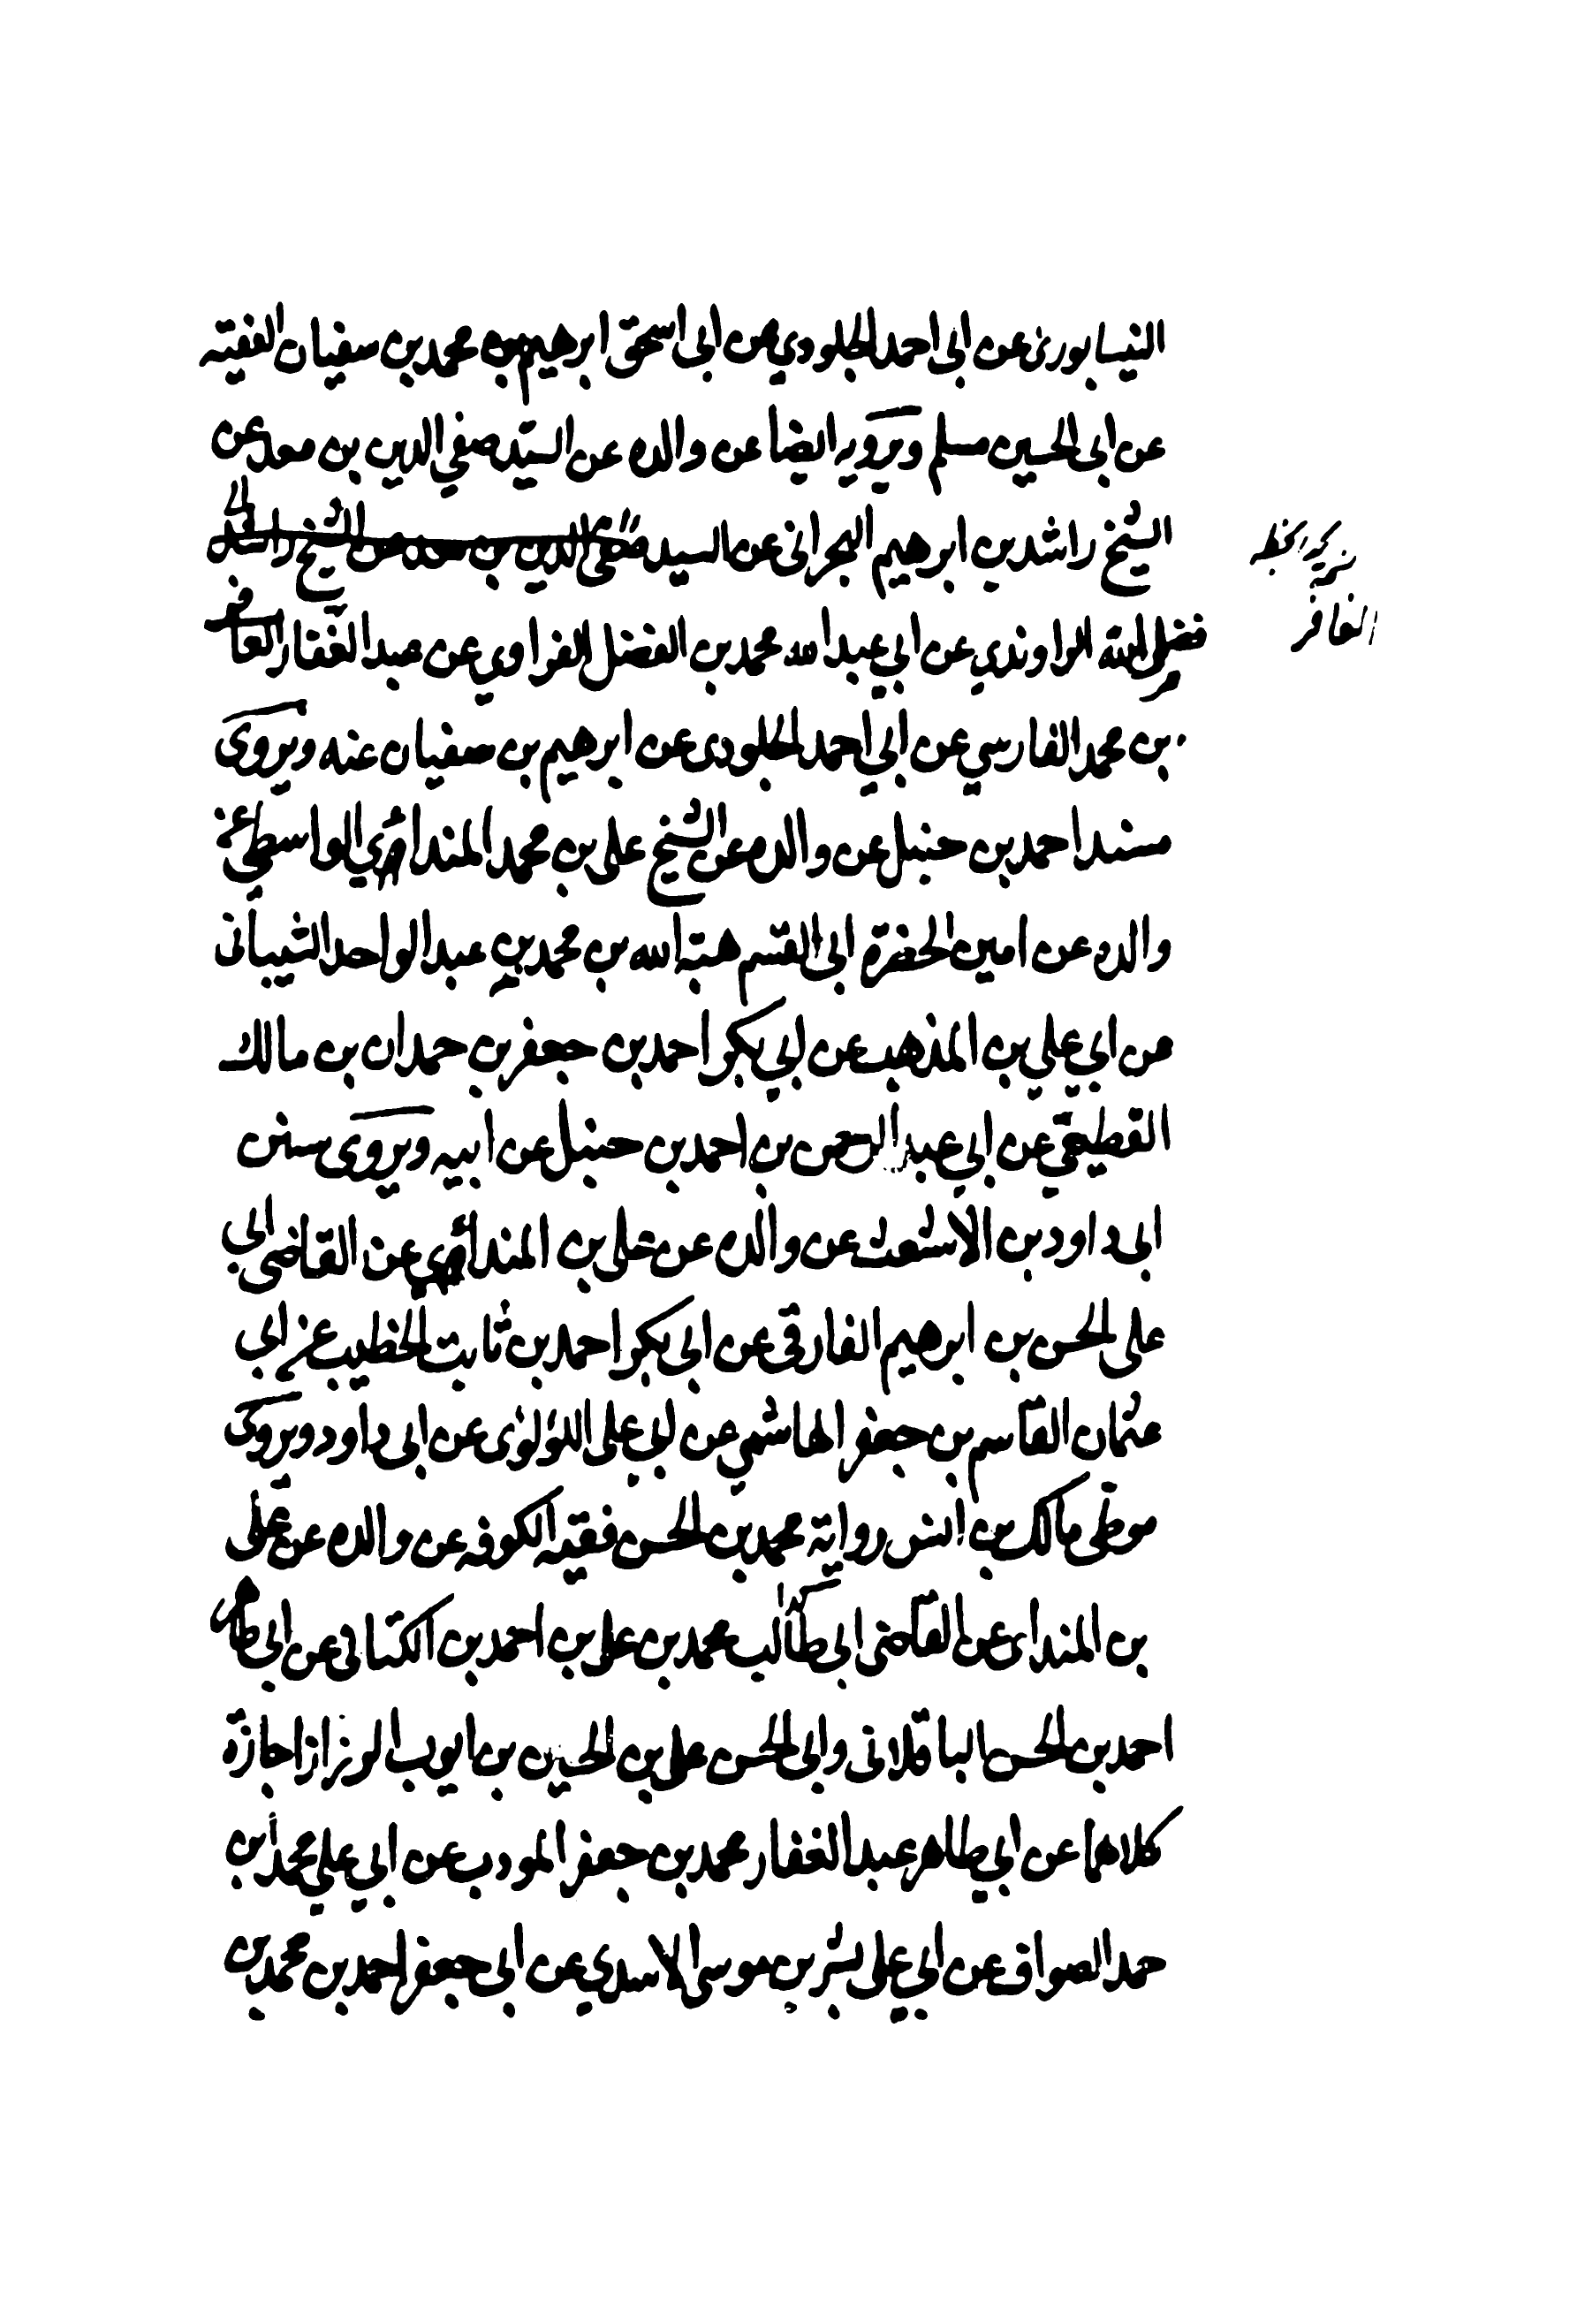 النيسابورى عن ابى احمد الجلودي عن ابى اسحق ابرهيم بن محمد بن سفيان الفقيه
عن ابى الحسين مسلم ويرويه ايضا عن والده عن السيد صفي الدين بن معد عن
الشيخ راشد بن ابرهيم البحرانى عن السيد صفى الدين بن معد عن الشيخ راشد
فضل الله الراوندي عن ابي عبد الله محمد بن الفضل الفراوي عن عبد الغفار الغافر
بن محمد الفارسي عن ابي احمد الجلودى عن ابرهيم بن سفيان عنه ويروى
مسند احمد بن حنبل عن والده عن الشيخ على بن محمد المندائي الواسطي عن
والده عن امين الحضرة ابى القسم هبة الله بن محمد بن عبد الواحد الشيبانى
عن ابي علي بن المذهب عن ابي بكر احمد بن جعفر بن حمدان بن مالك
القطيعي عن ابي عبد الرحمن بن احمد بن حنبل عن ابيه ويروى سنن
ابى داود بن الاشعث عن والده عن على بن المندائي عن القاضى ابي
على الحسن بن ابرهيم الفارقي عن ابى بكر احمد بن ثابت الخطيب عن ابي
عثمان القاسم بن جعفر الهاشمي عن ابي على اللؤلؤى عن ابى داود ويروى
موطى مالك بن انس رواية محمد بن الحسن فقيه الكوفه عن والده عن على
بن المنداى عن القاضى ابى طالب محمد بن على بن احمد بن الكتانى عن ابى طاهر
احمد بن الحسن الباقلانى وابى الحسن على بن الحسين بن ايوب الرزاز اجازة
كلاهما عن ابي طاهر عبد الغفار محمد بن جعفر المودب عن ابي علي محمد بن
حمد الصواف عن ابي على بشر بن موسى الاسدي عن ابى جعفر احمد بن محمد بن
الغافر